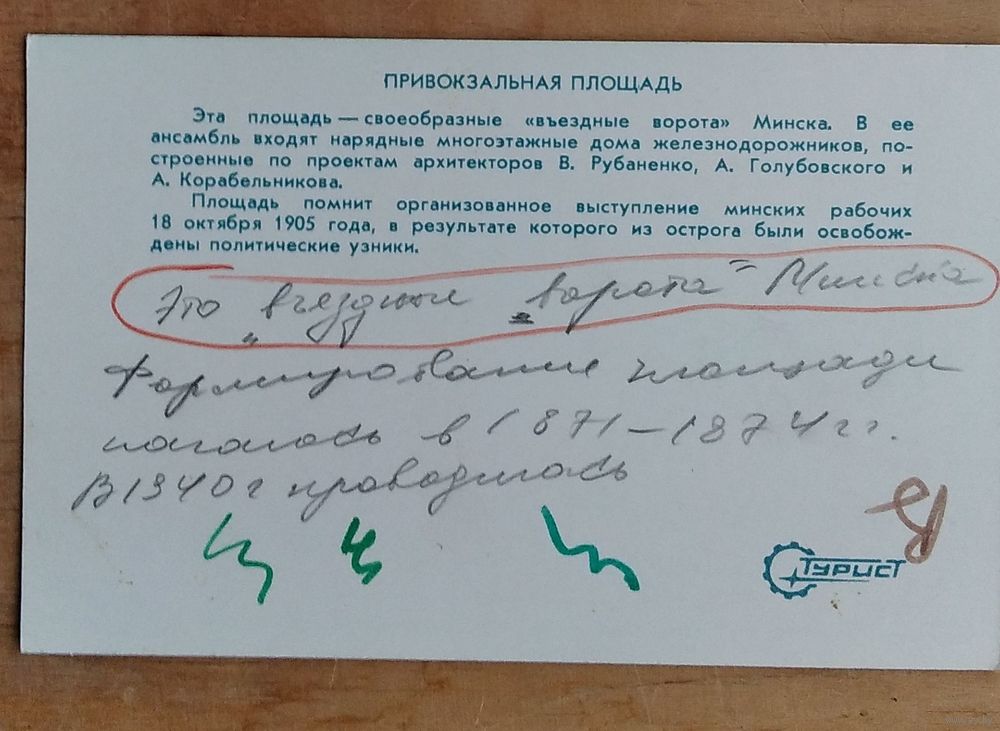 ПРИВОКЗАЛЬНАЯ ПЛОЩАДЬ
Эта площадь — своеобразные «въездные ворота» Минска. В ее
ансамбль входят нарядные многоэтажные дома железнодорожников, по-
строенные по проектам архитекторов В. Рубаненко, А. Голубовского и
А. Корабельникова.
Площадь помнит организованное выступление минских рабочих
18 октября 1905 года, в результате которого из острога были освобож-
дены политические узники.
Это „въездные „ворота" Минска
Формирование площади
началось в 1871–1874 гг.
В 1940 г проводилось
ТУРИСТ